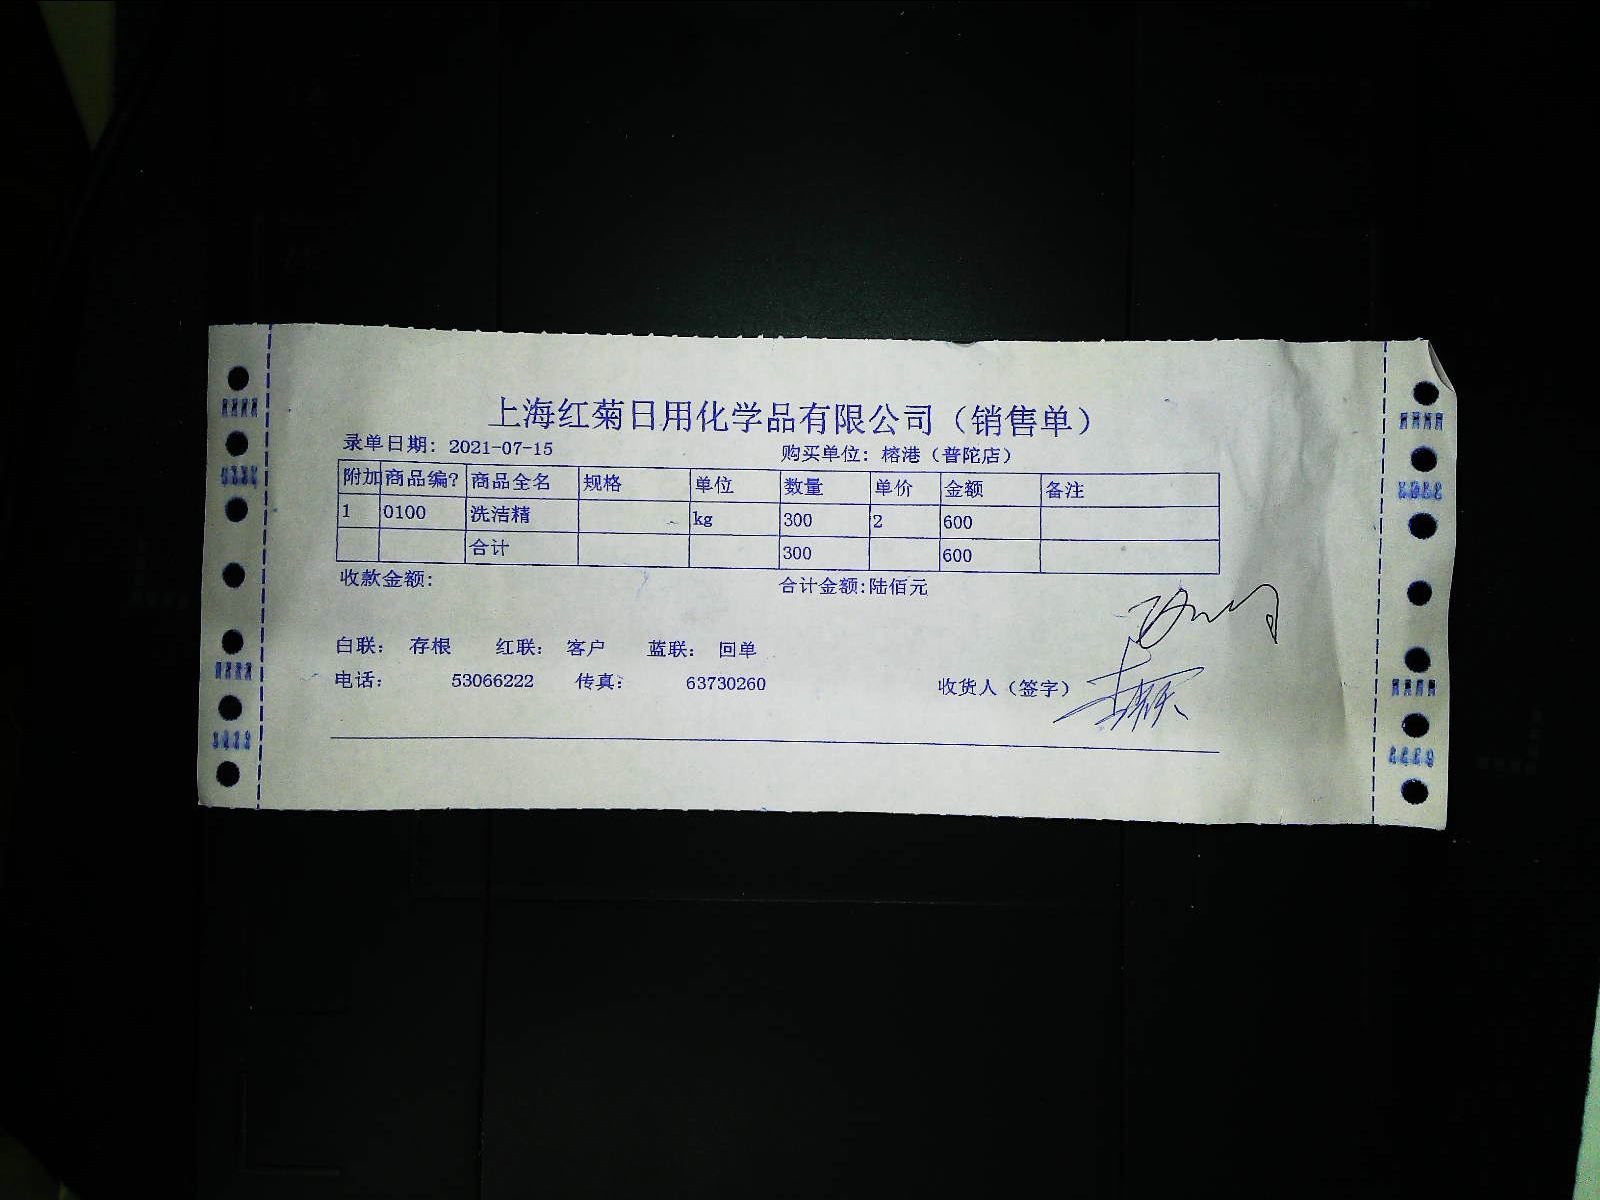 上海红菊日用化学品有限公司（销售单）
录单日期: 2021-07-15 购买单位: 榕港（普陀店）
附加 商品编? 商品全名 规格 单位 数量 单价 金额 备注
1 0100 洗洁精 kg 300 2 600
合计 300 600
收款金额: 合计金额:陆佰元
白联: 存根 红联: 客户 蓝联: 回单
电话: 53066222 传真: 63730260 收货人（签字）